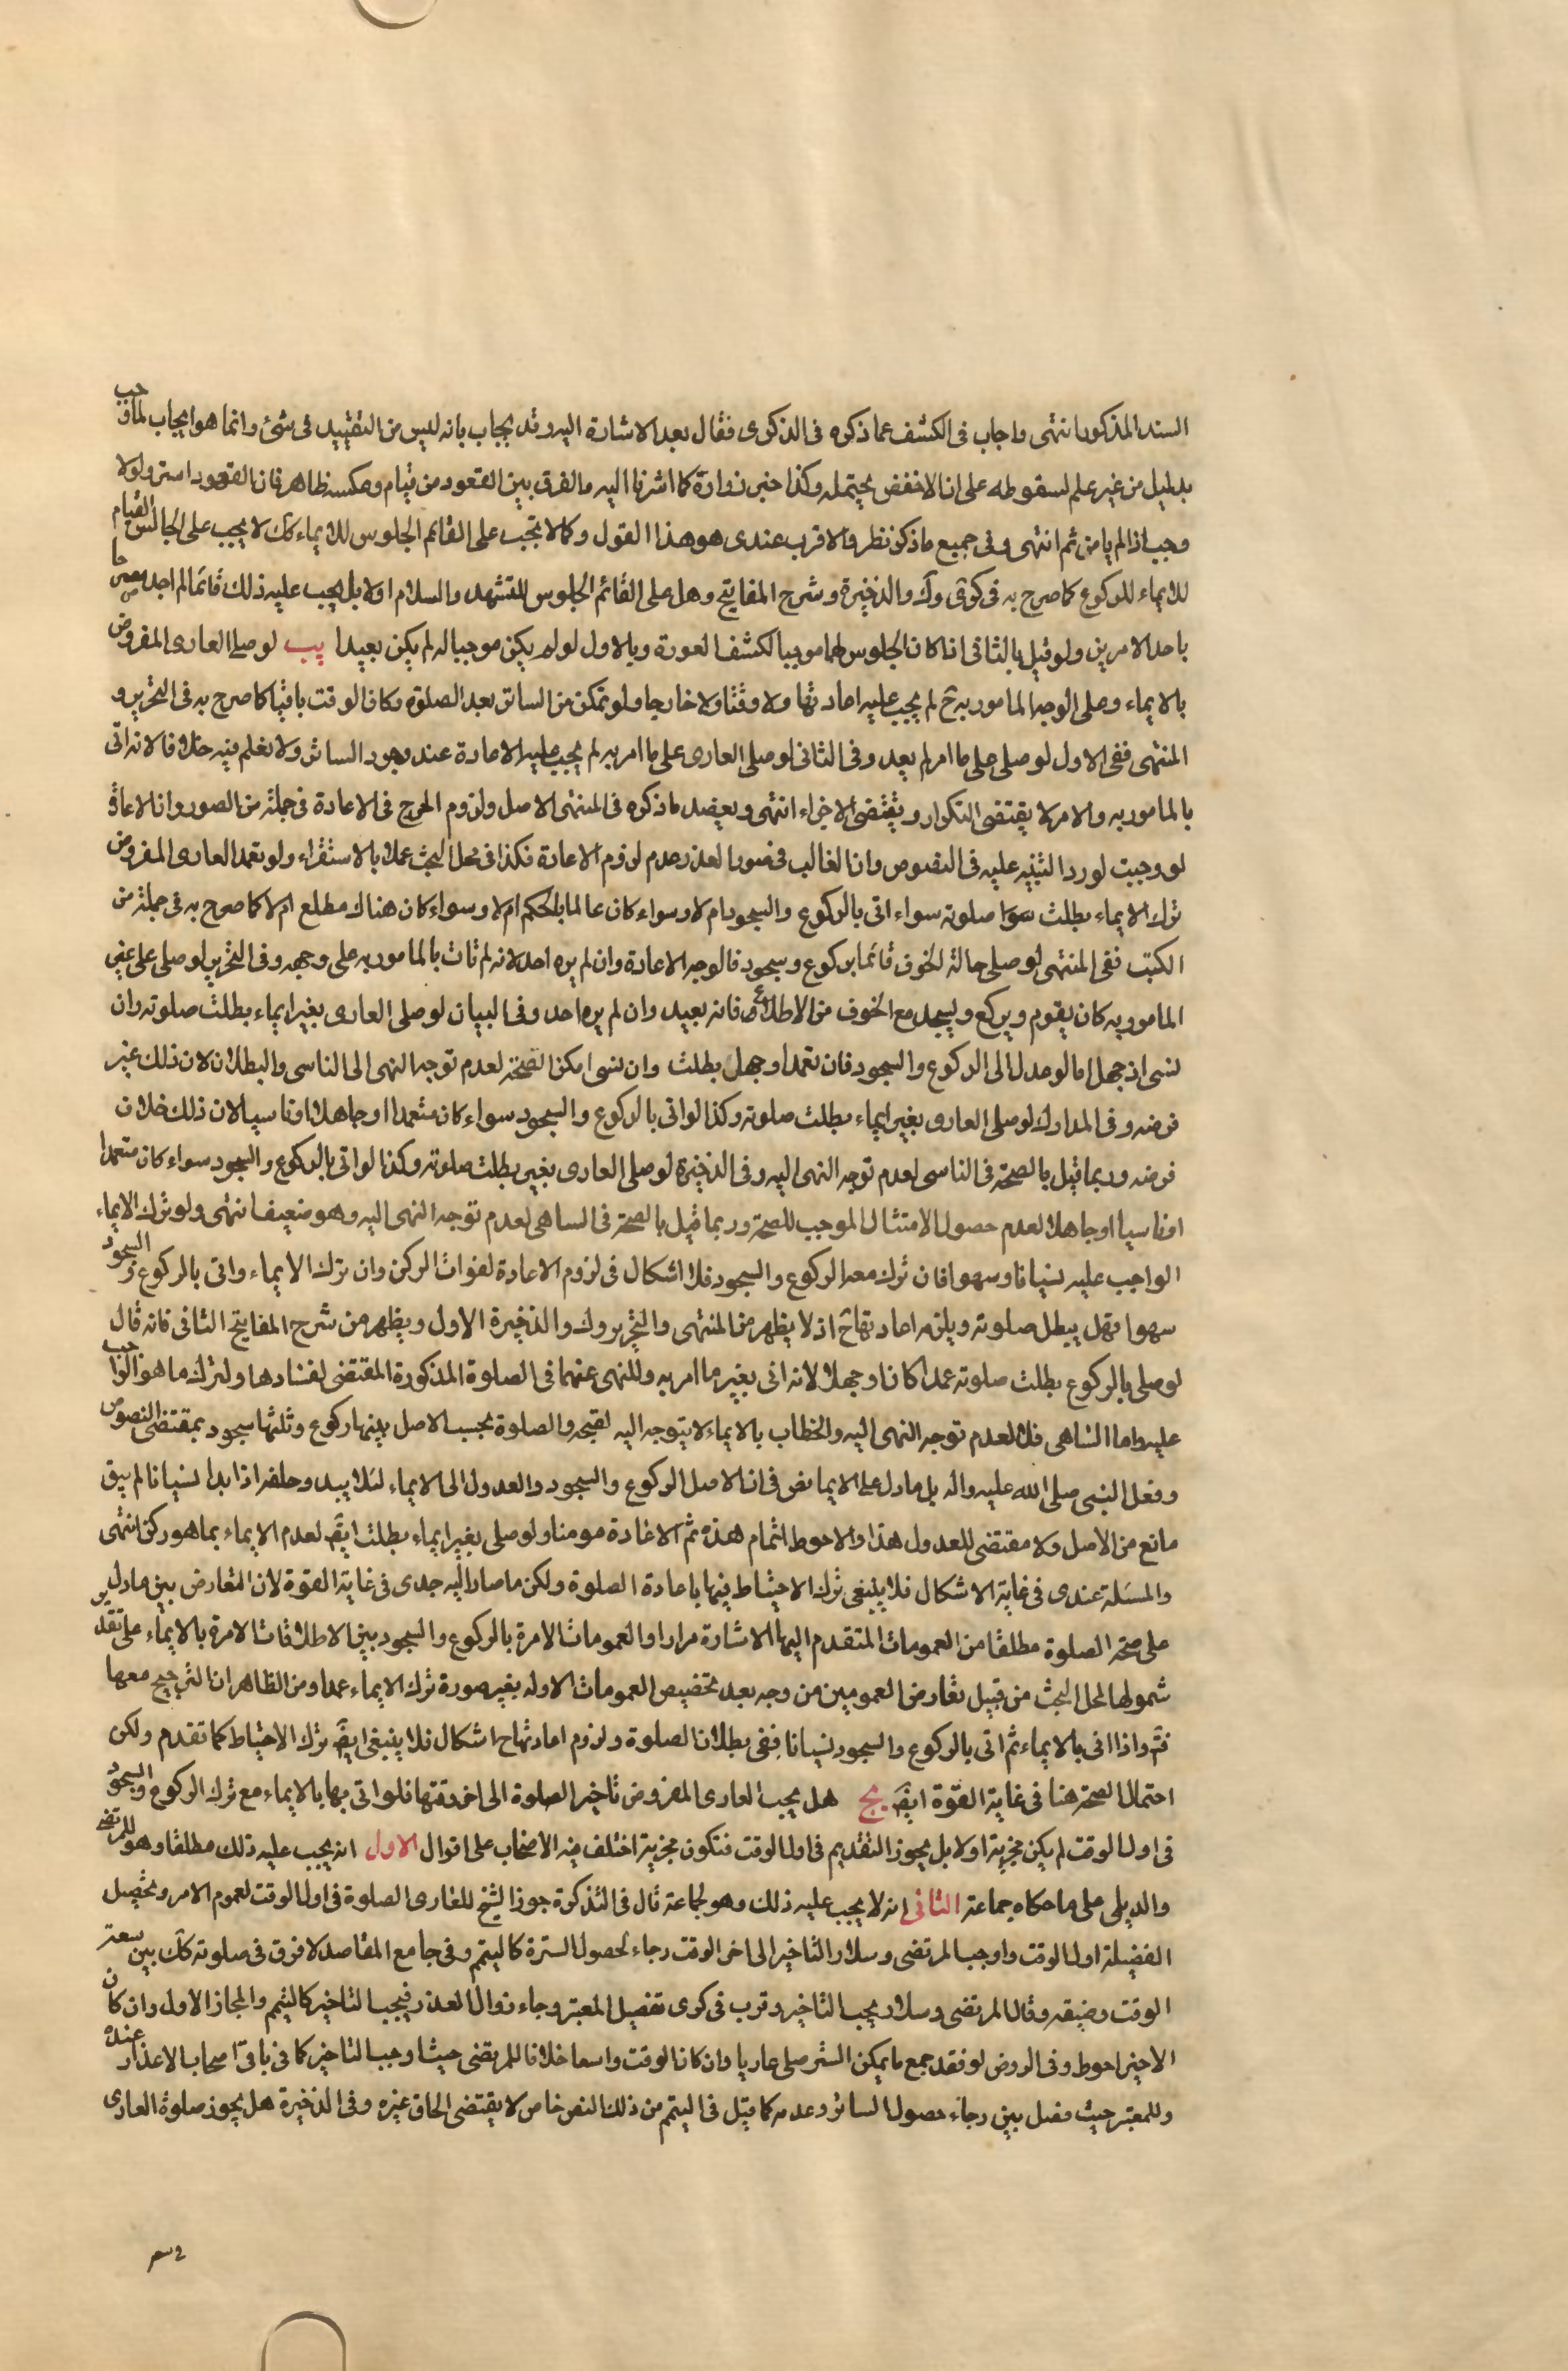 السند المذكور انتهى واجاب فى الكشف عما ذكره فى الذكرى فقال بعد الاشارة اليه وقد يجاب بانه ليس من التقييد فى شئ وانما هو ايجاب لما وجب
بدليل من غير علم لسقوطه على ان الاخفض يحتمله وكذا خبر زرارة كما اشرنا اليه ما لفرق بين القعود من قيام وعكسه ظاهر فان القعود استر ولولا
وجب اذا لم يامن ثم انتهى وفى جميع ما ذكره نظر والاقرب عندى هو هذا القول وكما لا يجب على القائم الجلوس للايماء كك لا يجب على الجالس القيام
للايماء للركوع كما صرح به فى كرى وك والذخيرة وشرح المفاتيح وهل على القائم الجلوس للتشهد والسلام اولا بل يجب عليه ذلك قائما لم اجد مصرحا
باحد الامرين ولو قيل بالثانى اذا كان الجلوس لهما موجبا لكشف العورة وبالاول لو لم يكن موجبا له لم يكن بعيدا يب لو صلى العارى المفروض
بالايماء وعلى الوجه المامور به ح لم يجب عليه اعادتها ولا وقتا ولا خارجا ولو تمكن من الساتر بعد الصلوة وكان الوقت باقيا كما صرح به فى التحرير و
المنتهى ففى الاول لو صلى على ما امر لم يعد وفى الثانى لو صلى العارى على ما امر به لم يجب عليه الاعادة عند وجود الساتر ولا نعلم فيه خلافا لانه اتى
بالمامور به والامر لا يقتضى التكرار ويقتضى الاجزاء انتهى ويعضد ما ذكره فى المنتهى الاصل ولزوم الحرج فى الاعادة فى جملة من الصور وان الاعادة
لو وجبت لورد التنبيه عليه فى النصوص وان الغالب فى صور العذر عدم لزوم الاعادة فكذا فى محل البحث عملا بالاستقراء ولو تعمد العارى المفروض
ترك الايماء بطلت سوا صلوته سواء اتى بالركوع والسجود ام لا وسواء كان عالما بالحكم ام لا وسواء كان هناك مطلع ام لا كما صرح به فى جملة من
الكتب ففى المنتهى لو صلى حالة الخوف قائما بركوع وسجود فالوجه الاعادة وان لم يره احد لانه لم تات بالمامور به على وجهه وفى التحرير لو صلى على غير
المامور به كان يقوم ويركع ويسجد مع الخوف من الاطلاع فانه يعيد وان لم يره احد وفى البيان لو صلى العارى بغير ايماء بطلت صلوته وان
نسى اذ جهل اما لو عدل الى الركوع والسجود فان تعمد او جهل بطلت وان نسى امكن الصحة لعدم توجه النهى الى الناسى والبطلان لان ذلك غير
فرضه وفى المدارك لو صلى العارى بغير ايماء بطلت صلوته وكذا لو اتى بالركوع والسجود سواء كان متعمدا او جاهلا او ناسيا لان ذلك خلاف
فرضه وربما قيل بالصحة فى الناسى لعدم توجه النهى اليه وفى الذخيرة لو صلى العارى بغير بطلت صلوته وكذا لو اتى بالركوع والسجود سواء كان متعمدا
او ناسيا او جاهلا لعدم حصول الامتثال الموجب للصحة وربما قيل بالصحة فى الساهى لعدم توجه النهى اليه وهو ضعيف انتهى ولو ترك الايماء
الواجب عليه نسيانا وسهوا فان ترك معه الركوع والسجود فلا اشكال فى لزوم الاعادة لفوات الركن وان ترك الايماء واتى بالركوع والسجود
سهوا فهل يبطل صلوته ويلزمه اعادتها ح اذ لا يظهر من المنتهى والتحرير وك والذخيرة الاول ويظهر من شرح المفاتيح الثانى فانه قال
لو صلى بالركوع بطلت صلوته عمدا كان او جهلا لانه اتى بغير ما امر به وللنهى عنهما فى الصلوة المذكورة المقتضى لفسادها ولترك ما هو الواجب
عليه واما الساهى فلا لعدم توجه النهى اليه والخطاب بالايماء لا يتوجه اليه لقبحه والصلوة بحسب الاصل بينها ركوع وثلثها سجود بمقتضى النصوص
وفعل النبى صلى الله عليه واله بل ما دل على الايما نص فى ان الاصل الركوع والسجود والعدول الى الايماء لئلا يبد وخلفه اذا بدا نسيانا لم يبق
مانع من الاصل ولا مقتضى للعدول هذا والاحوط اتمام هذه ثم الاعادة مومنا ولو صلى بغير ايماء بطلت ايض لعدم الايماء بما هو ركن انتهى
والمسئلة عندى فى غاية الاشكال فلا ينبغى ترك الاحتياط فيها باعادة الصلوة ولكن ما صار اليه جدى فى غاية القوة لان التعارض بين ما دل
على صحة الصلوة مطلقا من العمومات المتقدم اليها الاشارة مرارا والعمومات الامرة بالركوع والسجود بين الاطلاقات الامرة بالايماء على تقدير
شمولها لمحل البحث من قبيل تعارض العمومين من وجه بعد تخصيص العمومات الاوله بغير صورة ترك الايماء عمدا ومن الظاهر ان الترجيح معها
فتم واذا اتى بالايماء ثم اتى بالركوع والسجود نسيانا ففى بطلان الصلوة ولزوم اعادتها ح اشكال فلا ينبغى ايض ترك الاحتياط كما تقدم ولكن
احتمال الصحة هنا فى غاية القوة ايض يج هل يجب العارى المفروض تاخير الصلوة الى اخر وقتها فلو اتى بها بالايماء مع ترك الركوع والسجود
فى اول الوقت لم يكن مجزية اولا بل يجوز التقديم فى اول الوقت فتكون مجزية اختلف فيه الاصحاب على اقوال الاول انه يجب عليه ذلك مطلقا وهو للمرتضى
والديلمى على ما حكاه جماعة الثانى انه لا يجب عليه ذلك وهو لجماعة قال فى التذكرة جوز الشيخ للعارى الصلوة فى اول الوقت لعموم الامر وتحصيل
الفضيلة اول الوقت واوجب المرتضى وسلار التاخير الى اخر الوقت رجاء لحصول السترة كاليتم وفى جامع المقاصد لا فرق فى صلوته كك بين سعة
الوقت وضيقه وقال المرتضى وسلار يجب التاخير وقرب فى كرى تفصيل المعتبر وجاء زوال العذر فيجب التاخير كاليتم والمجاز الاول وان كان
الاخير احوط وفى الروض لو فقد جمع ما يمكن الستر صلى عاريا وان كان الوقت واسعا خلافا للمرتضى حيث اوجب التاخير كما فى باقى اصحاب الاعذار عنده
وللمعتبر حيث فصل بين رجاء حصول الساتر وعدمه كما قيل فى اليتم من ذلك النص خاص لا يقتضى الحاق غيره وفى الذخيرة هل يجوز صلوة العارى